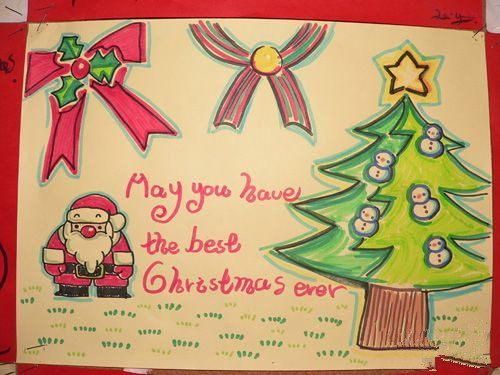 May you have
the best
Christmas ever